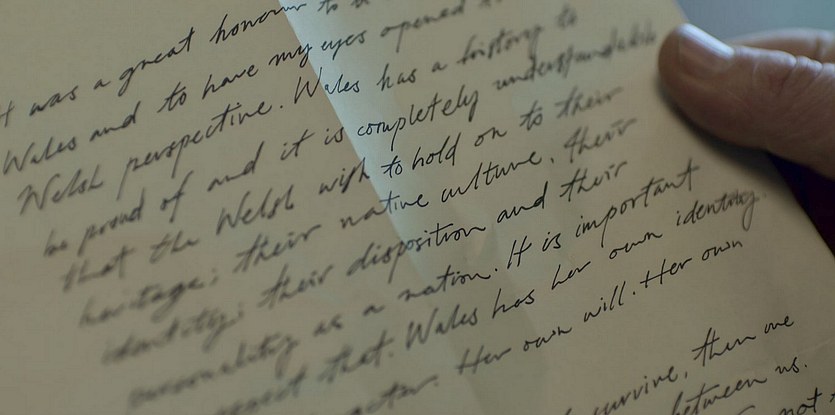 It was a great honour to
Wales and to have my eyes opened
Welsh perspective. Wales has a history to
be proud of and it is completely understandable
that the Welsh wish to hold on to their
heritage; their native culture, their
identity; their disposition and their
personality as a nation. It is important
respect that. Wales has her own identity.
Her own will. Her own
survive, then we
between us.
not